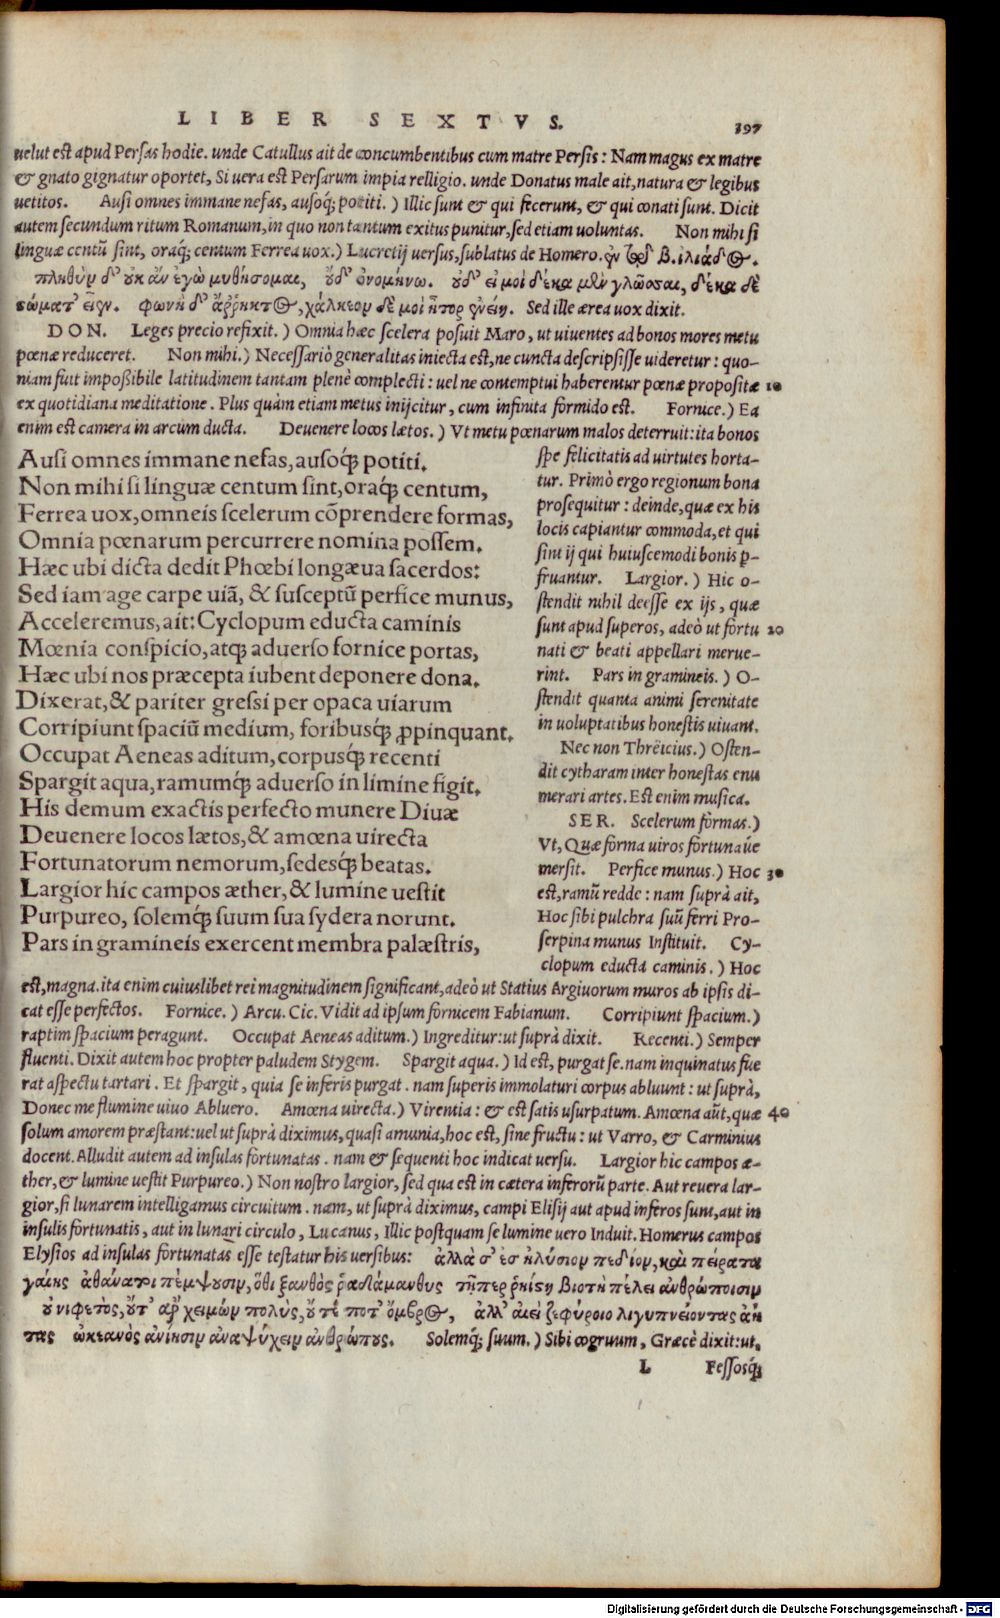 LIBER SEXTVS. 397
uelut est apud Persas hodie. unde Catullus ait de concumbentibus cum matre Persis: Nam magus ex matre
& gnato gignatur oportet, Si uera est Persarum impia relligio. unde Donatus male ait, natura & legibus
uetitos. Ausi omnes immane nefas, ausoq́; potiti.) Illic sunt & qui fecerunt, & qui conati sunt. Dicit
autem secundum ritum Romanum, in quo non tantum exitus punitur, sed etiam uoluntas. Non mihi si
linguæ centū sint, oraq́; centum Ferrea uox.) Lucretij uersus, sublatus de Homero. ἐν τῷ δ̓ β. ἰλιάδος.
πληθὺν δ' οὐκ ἂν ἐγὼ μυθήσομαι, οὐδ' ὀνομήνω. οὐδ' εἰ μοὶ δέκα μὲν γλῶσσαι, δέκα δὲ
στώματ' εἶεν. φωνὴ δ' ἄῤῥηκτος, χάλκεον δὲ μοὶ ἦτορ ἐνείη. Sed ille ærea uox dixit.
DON. Leges precio refixit.) Omnia hæc scelera posuit Maro, ut uiuentes ad bonos mores metu
pœnæ reduceret. Non mihi.) Necessariò generalitas iniecta est, ne cuncta descripsisse uideretur: quo-
niam fuit impoßibile latitudinem tantam plenè complecti: uel ne contemptui haberentur pœnæ propositæ 10
ex quotidiana meditatione. Plus quàm etiam metus inijcitur, cum infinita formido est. Fornice.) Ea
enim est camera in arcum ducta. Deuenere locos lætos.) Vt metu pœnarum malos deterruit: ita bonos
Ausi omnes immane nefas, ausoq́; potiti.
Non mihi si linguæ centum sint, oraq́; centum,
Ferrea uox, omneis scelerum cōprendere formas,
Omnia pœnarum percurrere nomina possem.
Hæc ubi dicta dedit Phœbi longæua sacerdos:
Sed iam age carpe uiā, & susceptū perfice munus,
Acceleremus, ait: Cyclopum educta caminis
Mœnia conspicio, atq; aduerso fornice portas,
Hæc ubi nos præcepta iubent deponere dona.
Dixerat, & pariter gressi per opaca uiarum
Corripiunt spaciū medium, foribusq́; ꝓpinquant.
Occupat Aeneas aditum, corpusq́; recenti
Spargit aqua, ramumq́; aduerso in limine figit.
His demum exactis perfecto munere Diuæ
Deuenere locos lætos, & amœna uirecta
Fortunatorum nemorum, sedesq́; beatas.
Largior hic campos æther, & lumine uestit
Purpureo, solemq́; suum sua sydera norunt.
Pars in gramineis exercent membra palæstris,
spe felicitatis ad uirtutes horta-
tur. Primò ergo regionum bona
prosequitur: deinde, quæ ex his
locis capiantur commoda, et qui
sint ij qui huiuscemodi bonis ꝑ-
fruantur. Largior.) Hic o-
stendit nihil deesse ex ijs, quæ
sunt apud superos, adeò ut fortu 20
nati & beati appellari merue-
rint. Pars in gramineis.) O-
stendit quanta animi serenitate
in uoluptatibus honestis uiuant.
Nec non Thrëicius.) Osten-
dit cytharam inter honestas enu
merari artes. Est enim musica.
SER. Scelerum formas.)
Vt, Quæ forma uiros fortunaúe
mersit. Perfice munus.) Hoc 30
est, ramū redde: nam suprà ait,
Hoc sibi pulchra suū ferri Pro-
serpina munus Instituit. Cy-
clopum educta caminis.) Hoc
est, magna. ita enim cuiuslibet rei magnitudinem significant, adeò ut Statius Argiuorum muros ab ipsis di-
cat esse perfectos. Fornice.) Arcu. Cic. Vidit ad ipsum fornicem Fabianum. Corripiunt spacium.)
raptim spacium peragunt. Occupat Aeneas aditum.) Ingreditur: ut suprà dixit. Recenti.) Semper
fluenti. Dixit autem hoc propter paludem Stygem. Spargit aqua.) Id est, purgat se. nam inquinatus fue
rat aspectu tartari. Et spargit, quia se inferis purgat. nam superis immolaturi corpus abluunt: ut suprà,
Donec me flumine uiuo Abluero. Amœna uirecta.) Virentia: & est satis usurpatum. Amœna aūt, quæ 40
solum amorem præstant: uel ut suprà diximus, quasi amunia, hoc est, sine fructu: ut Varro, & Carminius
docent. Alludit autem ad insulas fortunatas. nam & sequenti hoc indicat uersu. Largior hic campos æ-
ther, & lumine uestit Purpureo.) Non nostro largior, sed qua est in cætera inferorū parte. Aut reuera lar-
gior, si lunarem intelligamus circuitum. nam, ut suprà diximus, campi Elisij aut apud inferos sunt, aut in
insulis fortunatis, aut in lunari circulo, Lucanus, Illic postquam se lumine uero Induit. Homerus campos
Elysios ad insulas fortunatas esse testatur his uersibus: ἀλλὰ σ' ἐσ ηλύσιον πεδίον, καὶ πείρατα
γαίης ἀθάνατοι πέμψουσιν, ὅθι ξανθὸς ῥαδάμανθυς τῇπερ ῥηίστη βιοτὴ πέλει ἀνθρώποισιν
οὐ νιφετὸς, οὔτ' ἂρ χειμὼν πολὺς, οὔτέ ποτ' ὄμβρος, ἀλλ' αἰεὶ ζεφύροιο λιγυπνείοντας ἀή
τας ὠκεανὸς ἀνίησιν ἀναψύχειν ἀνθρώπους. Solemq́; suum.) Sibi congruum, Græcè dixit: ut,
L Fessosq́;
Digitalisierung gefördert durch die Deutsche Forschungsgemeinschaft - DFG